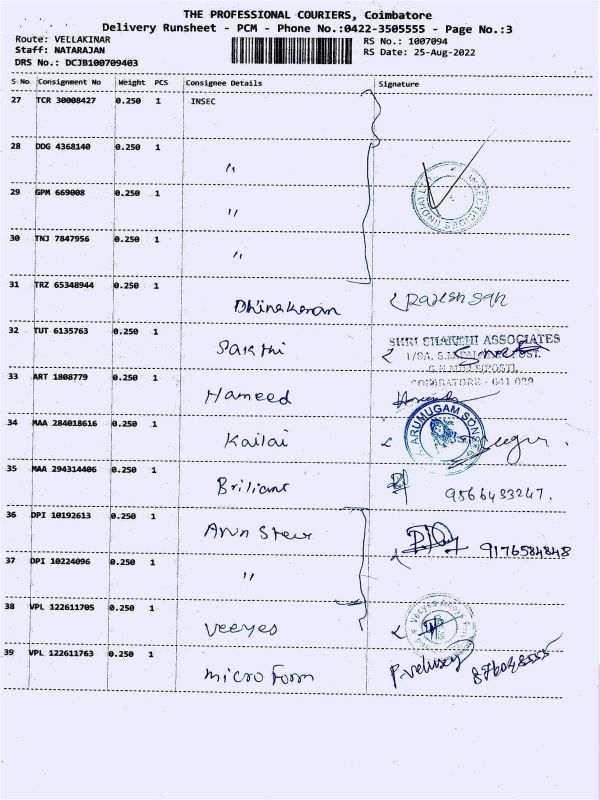 THE PROFESSIONAL COURIERS, Coimbatore
Delivery Runsheet - PCM - Phone No.:0422-3505555 - Page No.:3
Route: VELLAKINAR RS No.: 1007094
Staff: NATARAJAN RS Date: 25-Aug-2022
DRS No.: DCJB100709403
S No Consignment No Weight PCS Consignee Details Signature
27 TCR 30008427 0.250 1 INSEC
28 DDG 4368140 0.250 1 "
29 GPM 669008 0.250 1 "
30 TNJ 7847956 0.250 1 "
31 TRZ 65348944 0.250 1 Dhinakaran
32 TUT 6135763 0.250 1 Sakthi
SHRI SHAKTHI ASSOCIATES
COIMBATORE - 641 029
33 ART 1808779 0.250 1 Hameed
34 MAA 284018616 0.250 1 Kailai
ARUMUGAM SONS
35 MAA 294314406 0.250 1 Briliant 9566433247.
36 DPI 10192613 0.250 1 Arun Steer 9176584848
37 DPI 10224096 0.250 1 "
38 VPL 122611705 0.250 1 Veeyes
39 VPL 122611763 0.250 1 Micro Form